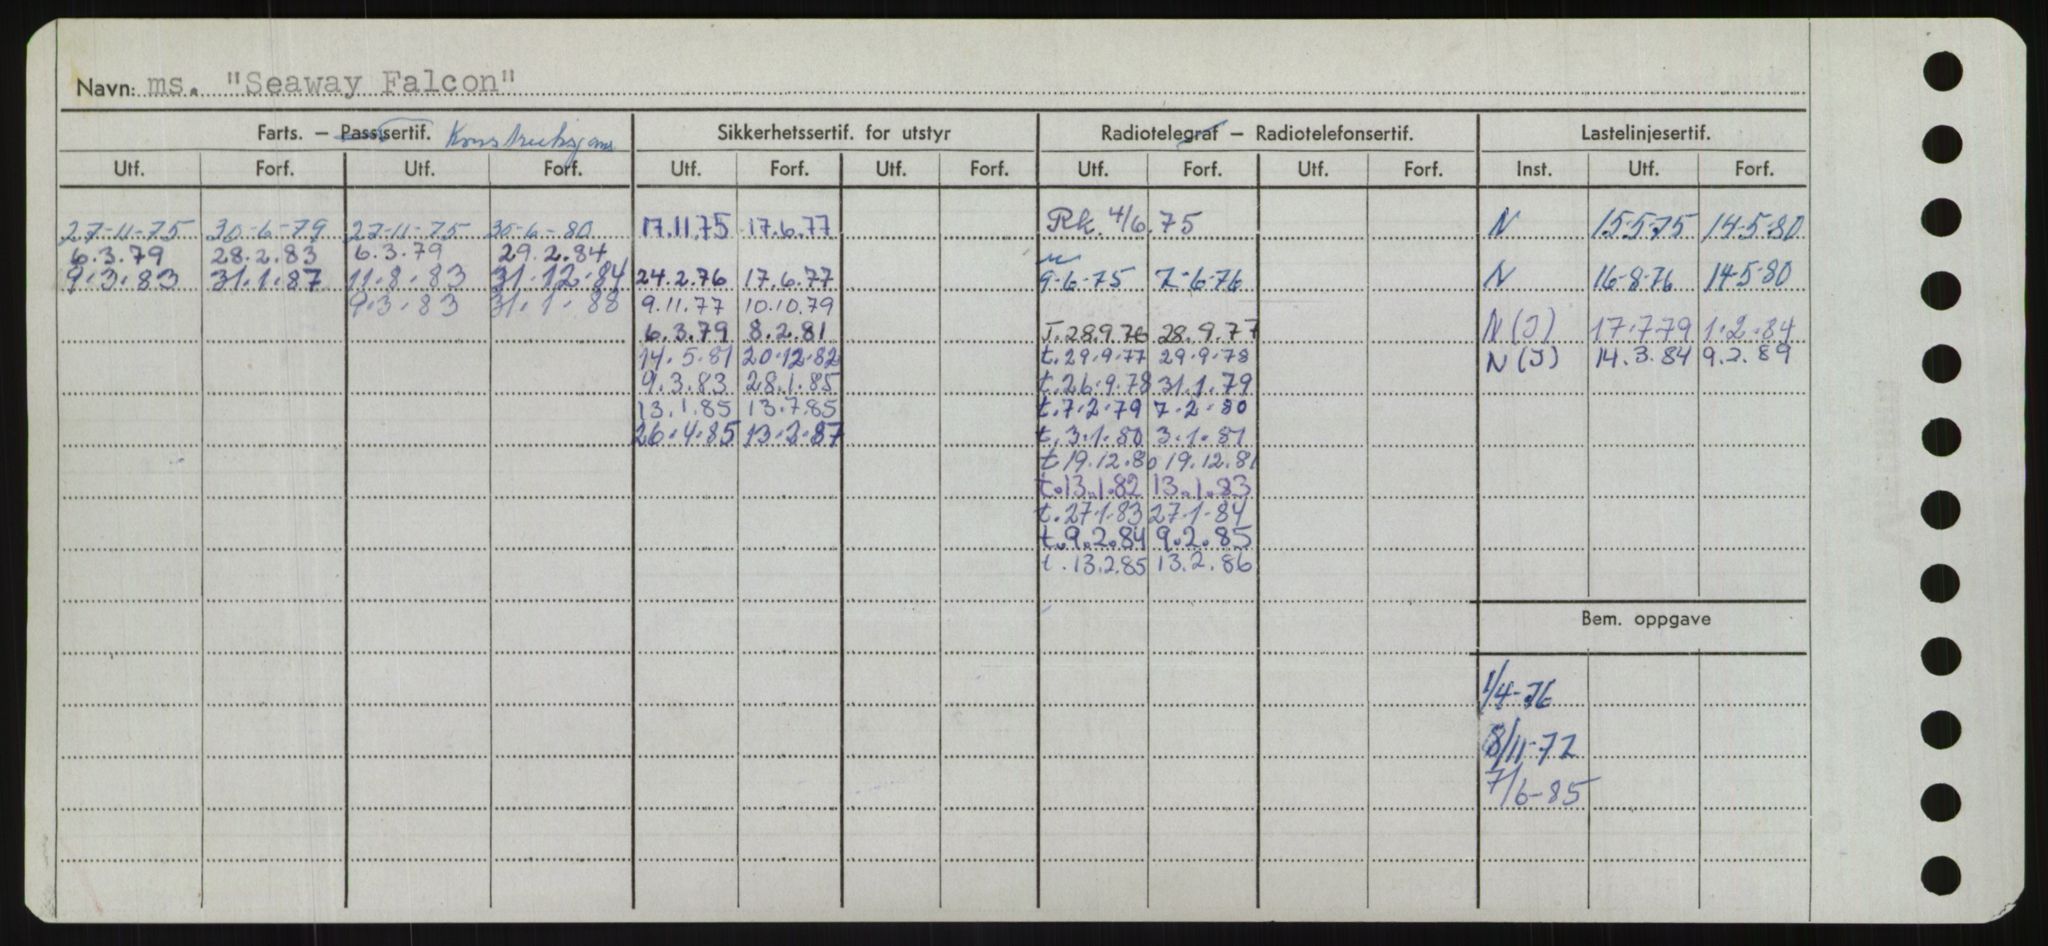 Navn: ms. "Seaway Falcon"
Farts. — Passsertif. Konstruksjons Sikkerhetssertif. for utstyr Radiotelegraf — Radiotelefonsertif. Lastelinjesertif.
Utf. Forf. Utf. Forf. Utf. Forf. Utf. Forf. Utf. Forf. Utf. Forf. Inst. Utf. Forf.
27-11-75 30-6-79 27-11-75 30-6-80 17.11.75 17.6.77 Rk. 4/6.75 N 15-5-75 14-5-80
6.3.79 28.2.83 6.3.79 29.2.84
9.3.83 31.1.87 11.8.83 31.12.84 24.2.76 17.6.77 9-6-75 7-6-76 N 16-8-76 14-5-80
9.3.83 31.1.88 9.11.77 10.10.79
6.3.79 8.2.81 T.28.9.76 28.9.77 N(J) 17.7.79 1.2.84
14.5.81 20.12.82 t.29.9.77 29.9.78 N(J) 14.3.84 9.2.89
9.3.83 28.1.85 t.26.9.78 31.1.79
13.1.85 13.7.85 t.7.2.79 7.2.80
26.4.85 13.2.87 t.3.1.80 3.1.81
t 19.12.80 19.12.81
t.13.1.82 13.1.83
t.27.1.83 27.1.84
t.9.2.84 9.2.85
t.13.2.85 13.2.86
Bem. oppgave
1/4-76
8/11-77
7/6-85